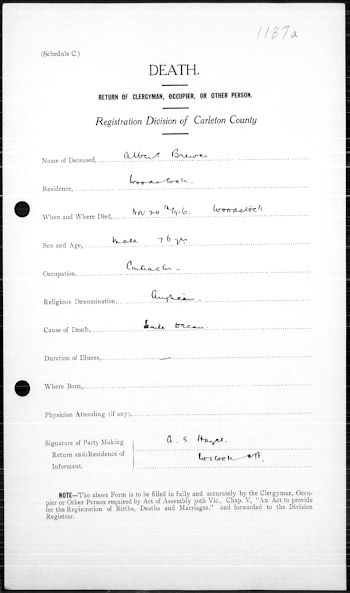 1187a
(Schedule C.)
DEATH.
RETURN OF CLERGYMAN, OCCUPIER, OR OTHER PERSON.
Registration Division of Carleton County
Name of Deceased, Albert Brewer
Residence, Woodstock
When and Where Died, Nov 20th 1916. Woodstock
Sex and Age, Male 76 yr
Occupation,
Religious Denomination, Anglican
Cause of Death, Senile Decay
Duration of Illness, —
Where Born,
Physician Attending (if any),
Signature of Party Making
Return and Residence of
Informant.
A. S. Hazel
NB.
NOTE—The above Form is to be filled in fully and accurately by the Clergyman, Occu-
pier or Other Person required by Act of Assembly 50th Vic., Chap. V, "An Act to provide
for the Registration of Births, Deaths and Marriages." and forwarded to the Division
Registrar.